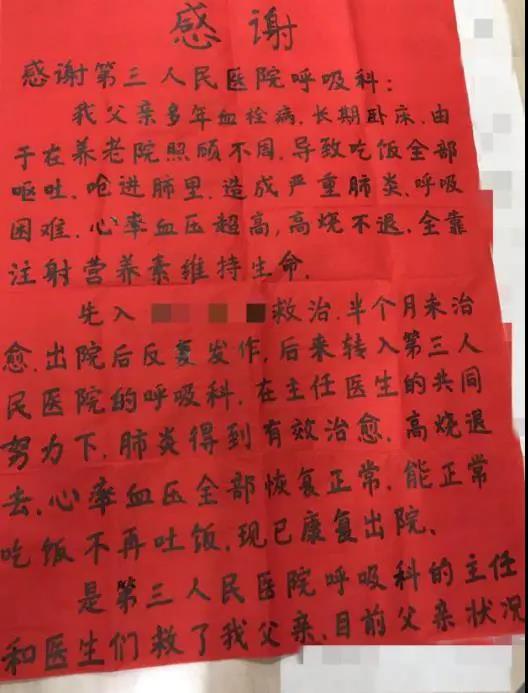 感谢
感谢第三人民医院呼吸科:
我父亲多年血栓病、长期卧床、由
于在养老院照顾不周、导致吃饭全部
呕吐、呛进肺里、造成严重肺炎、呼吸
困难、心率血压超高,高烧不退、全靠
注射营养素维持生命、
先入救治、半个月未治
愈、出院后反复发作、后来转入第三人
民医院的呼吸科、在主任医生的共同
努力下、肺炎得到有效治愈、高烧退
去、心率血压全部恢复正常、能正常
吃饭不再吐饭、现已康复出院、
是第三人民医院呼吸科的主任
和医生们救了我父亲、目前父亲状况